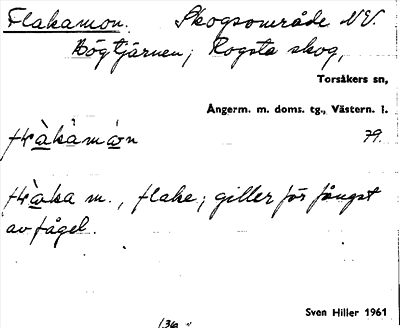 Flakamon. Skogsområde NV.
Högtjärnen, Rogsta skog,
Torsåkers sn,
Ångerm. m. doms. tg., Västern. l.
79.
flaka m., flake; giller för fångst
av fågel.
Sven Hiller 1961
136